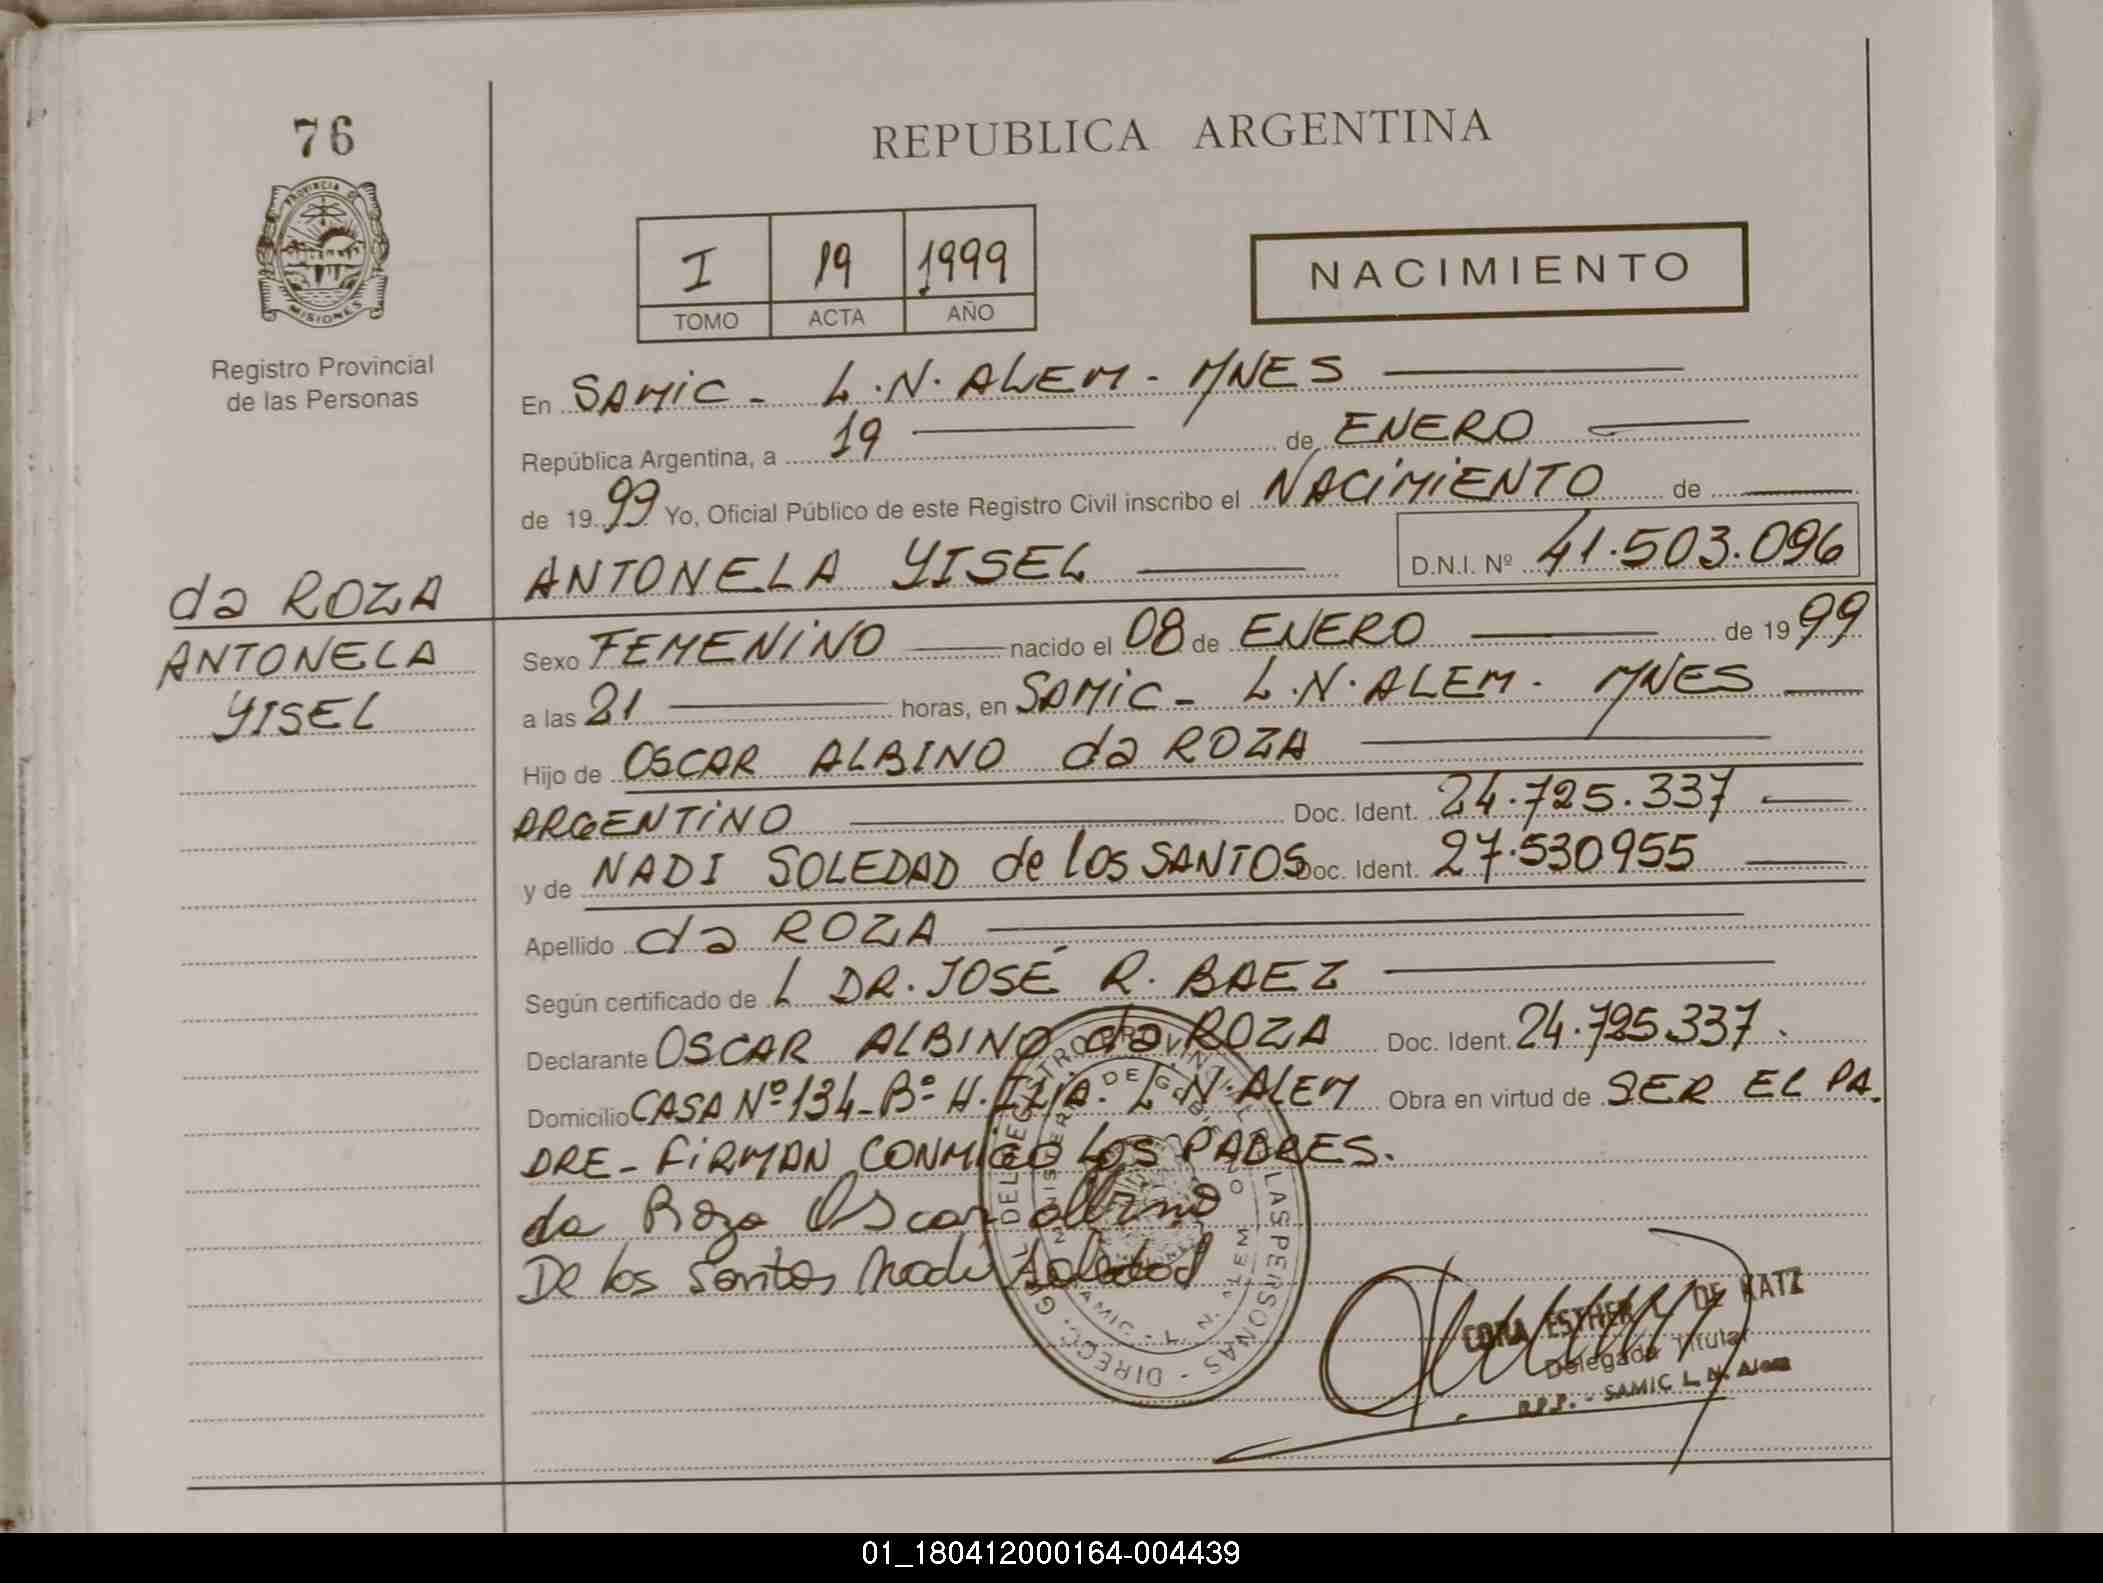 76
PROVINCIA DE
MISIONES
Registro Provincial
de las Personas
da ROZA
ANTONELA
YISEL
REPUBLICA ARGENTINA
I 19 1999
TOMO ACTA AÑO
NACIMIENTO
En SAMIC - L.N. ALEM - MNES
República Argentina, a 19 de ENERO
de 1999 Yo, Oficial Público de este Registro Civil inscribo el NACIMIENTO de
ANTONELA YISEL D.N.I. Nº 41.503.096
Sexo FEMENINO nacido el 08 de ENERO de 1999
a las 21 horas, en SAMIC - L.N. ALEM - MNES
Hijo de OSCAR ALBINO da ROZA
ARGENTINO Doc. Ident. 24.725.337
y de NADI SOLEDAD de los SANTOS Doc. Ident. 27.530955
Apellido da ROZA
Según certificado de L DR. JOSÉ R. BAEZ
Declarante OSCAR ALBINO da ROZA Doc. Ident. 24.725.337.
Domicilio CASA Nº 134 - Bº H. L. N. ALEM Obra en virtud de SER EL PA.
DRE - FIRMAN CONMIGO LOS PADRES.
da Roza Oscar Albino
De los Santos Nadi Soledad
DIRECC. GRAL DEL REGISTRO PROVINCIAL DE LAS PERSONAS
MINISTERIO DE GOBIERNO
SAMIC - L. N. ALEM
ESTHER DE KATZ
Delegada Titular
R.P.P. - SAMIC L. N. Alem
01_180412000164-004439